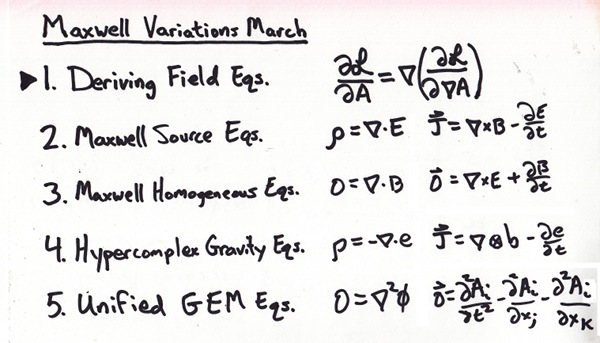 Maxwell Variations March
▶1. Deriving Field Eqs. ∂ℒ/∂A = ∇(∂ℒ/∂∇A)
2. Maxwell Source Eqs. ρ = ∇·E J⃗ = ∇×B - ∂E/∂t
3. Maxwell Homogeneous Eqs. 0 = ∇·B 0⃗ = ∇×E + ∂B/∂t
4. Hypercomplex Gravity Eqs. ρ = -∇·e J⃗ = ∇⊗b - ∂e/∂t
5. Unified GEM Eqs. 0 = ∇²φ 0⃗ = ∂²Aᵢ/∂t² - ∂²Aᵢ/∂xⱼ - ∂²Aᵢ/∂xₖ